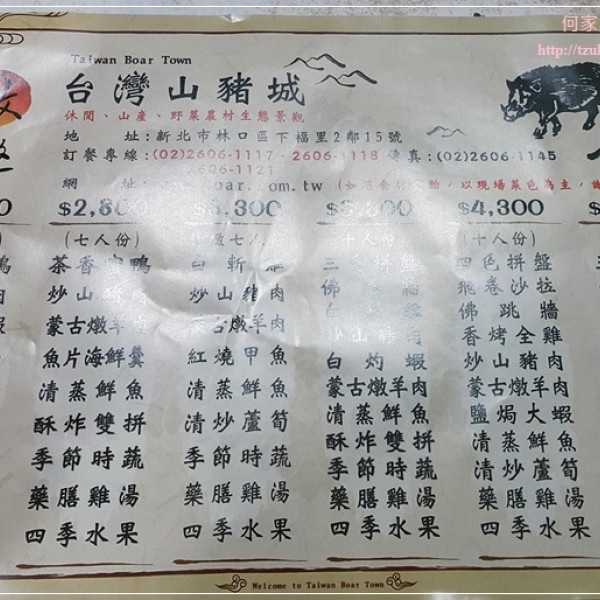 何家
http://tzul
Taiwan Boar Town
台灣山豬城
休閒、山產、野菜農村生態景觀
地 址:新北市林口區下福里2鄰15號
訂餐專線:(02)2606-1117、2606-1118 傳真:(02)2606-1145
2606-1121
網 址: boar.com.tw (如 動,以現場菜色為主,
$2,800
(七人份)
茶香 鴨
炒山豬肉
蒙古燉羊肉
魚片海鮮羹
清蒸鮮魚
酥炸雙拼
季節時蔬
藥膳雞湯
四季水果
$3,300
七人份)
白斬雞
炒山豬肉
蒙古燉羊肉
紅燒甲魚
清蒸鮮魚
清炒蘆筍
季節時蔬
藥膳雞湯
四季水果
$3,800
(十人份)
三 拼盤
佛跳牆
白
炒山豬肉
白灼蝦
蒙古燉羊肉
清蒸鮮魚
酥炸雙拼
季節時蔬
藥膳雞湯
四季水果
$4,300
(十人份)
四色拼盤
飛卷沙拉
佛跳牆
香烤全雞
炒山豬肉
蒙古燉羊肉
鹽焗大蝦
清蒸鮮魚
清炒蘆筍
藥膳雞湯
四季水果
Welcome to Taiwan Boar Town